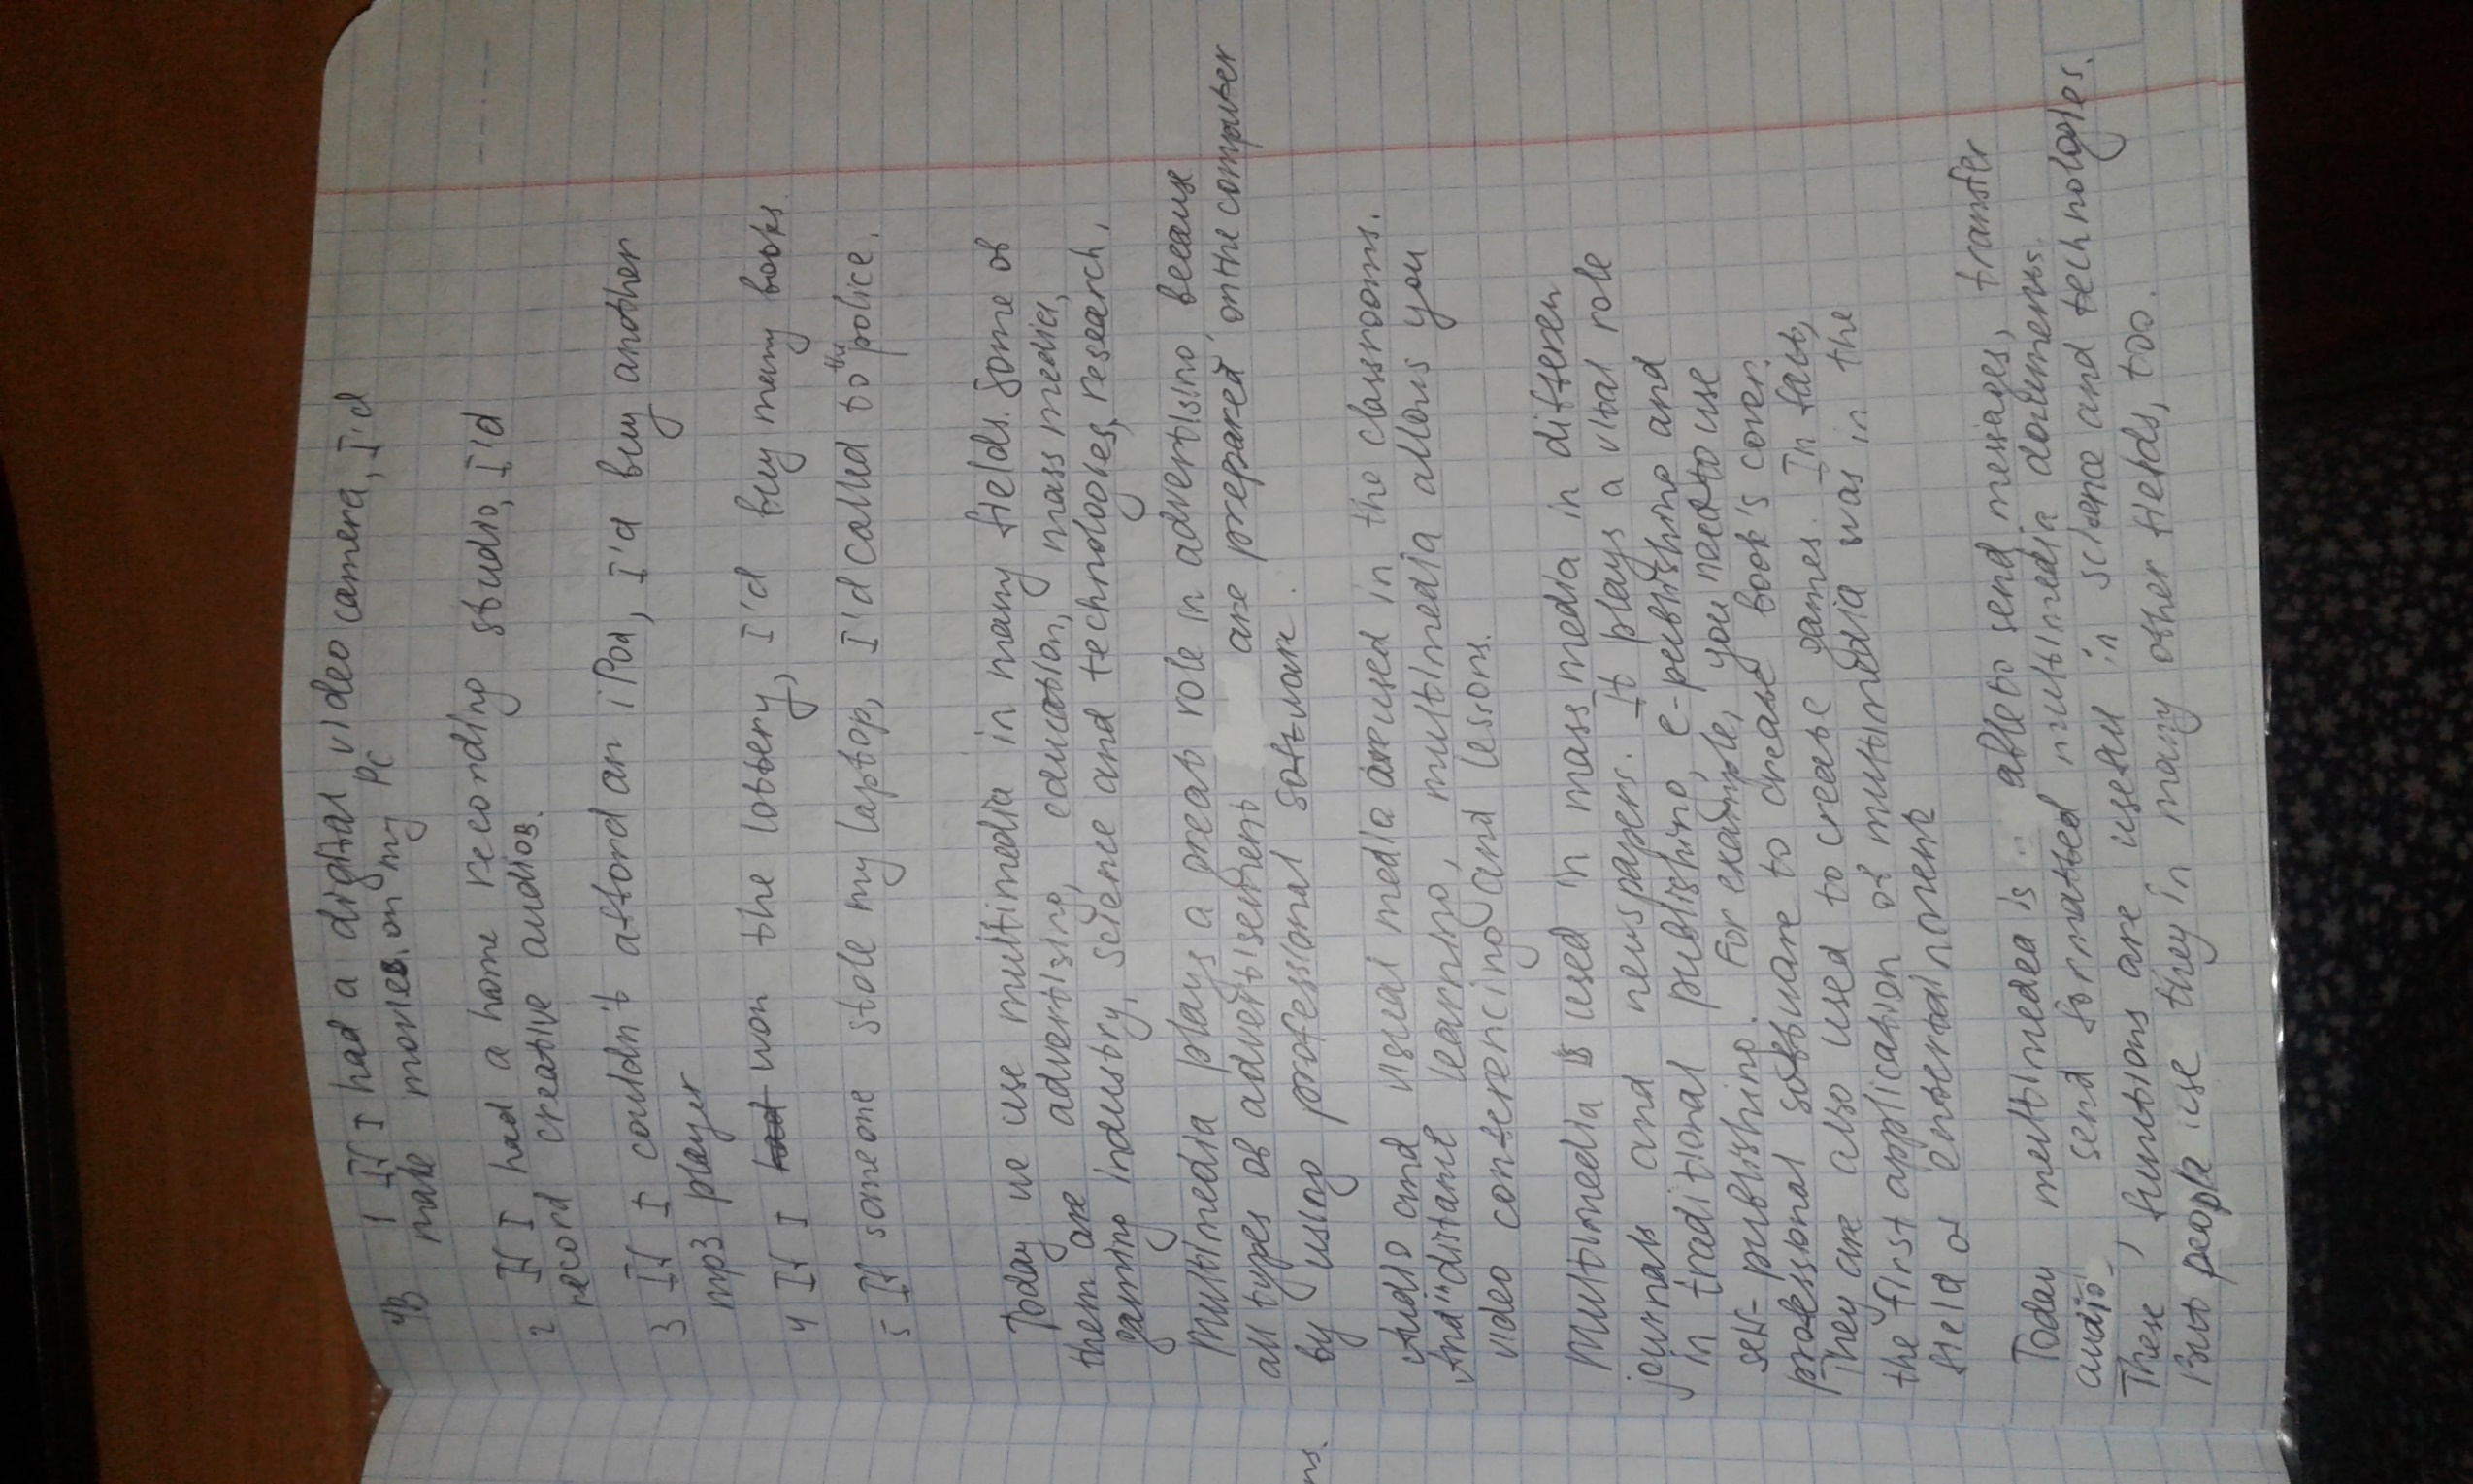 4B 1 If I had a digital video camera, I'd
make movies on my PC
2 If I had a home recording studio, I'd
record creative audios.
3 If I couldn't afford an iPod, I'd buy another
mp3 player
4 If I had won the lottery, I'd buy many books.
5 If someone stole my laptop, I'd called to the police.
Today we use multimedia in many fields. Some of
them are advertising, education, mass media,
gaming industry, science and technologies, research.
Multimedia plays a great role in advertising because
all types of advertisement are prepared on the computer
by using professional software.
Audio and visual media are used in the classrooms.
And distance learning, multimedia allows you
video conferencing and lessons.
Multimedia is used in mass media in differen
journals and newspapers. It plays a vital role
in traditional publishing, e-publishing and
self-publishing. For example, you need to use
professional software to create book's cover.
They are also used to create games. In fact,
the first application of multimedia was in the
field of entertainment
Today multimedea is able to send messages, transfer
audio- send formatted multimedia documents.
These functions are useful in science and technologies.
But people use they in many other fields, too.
ns.